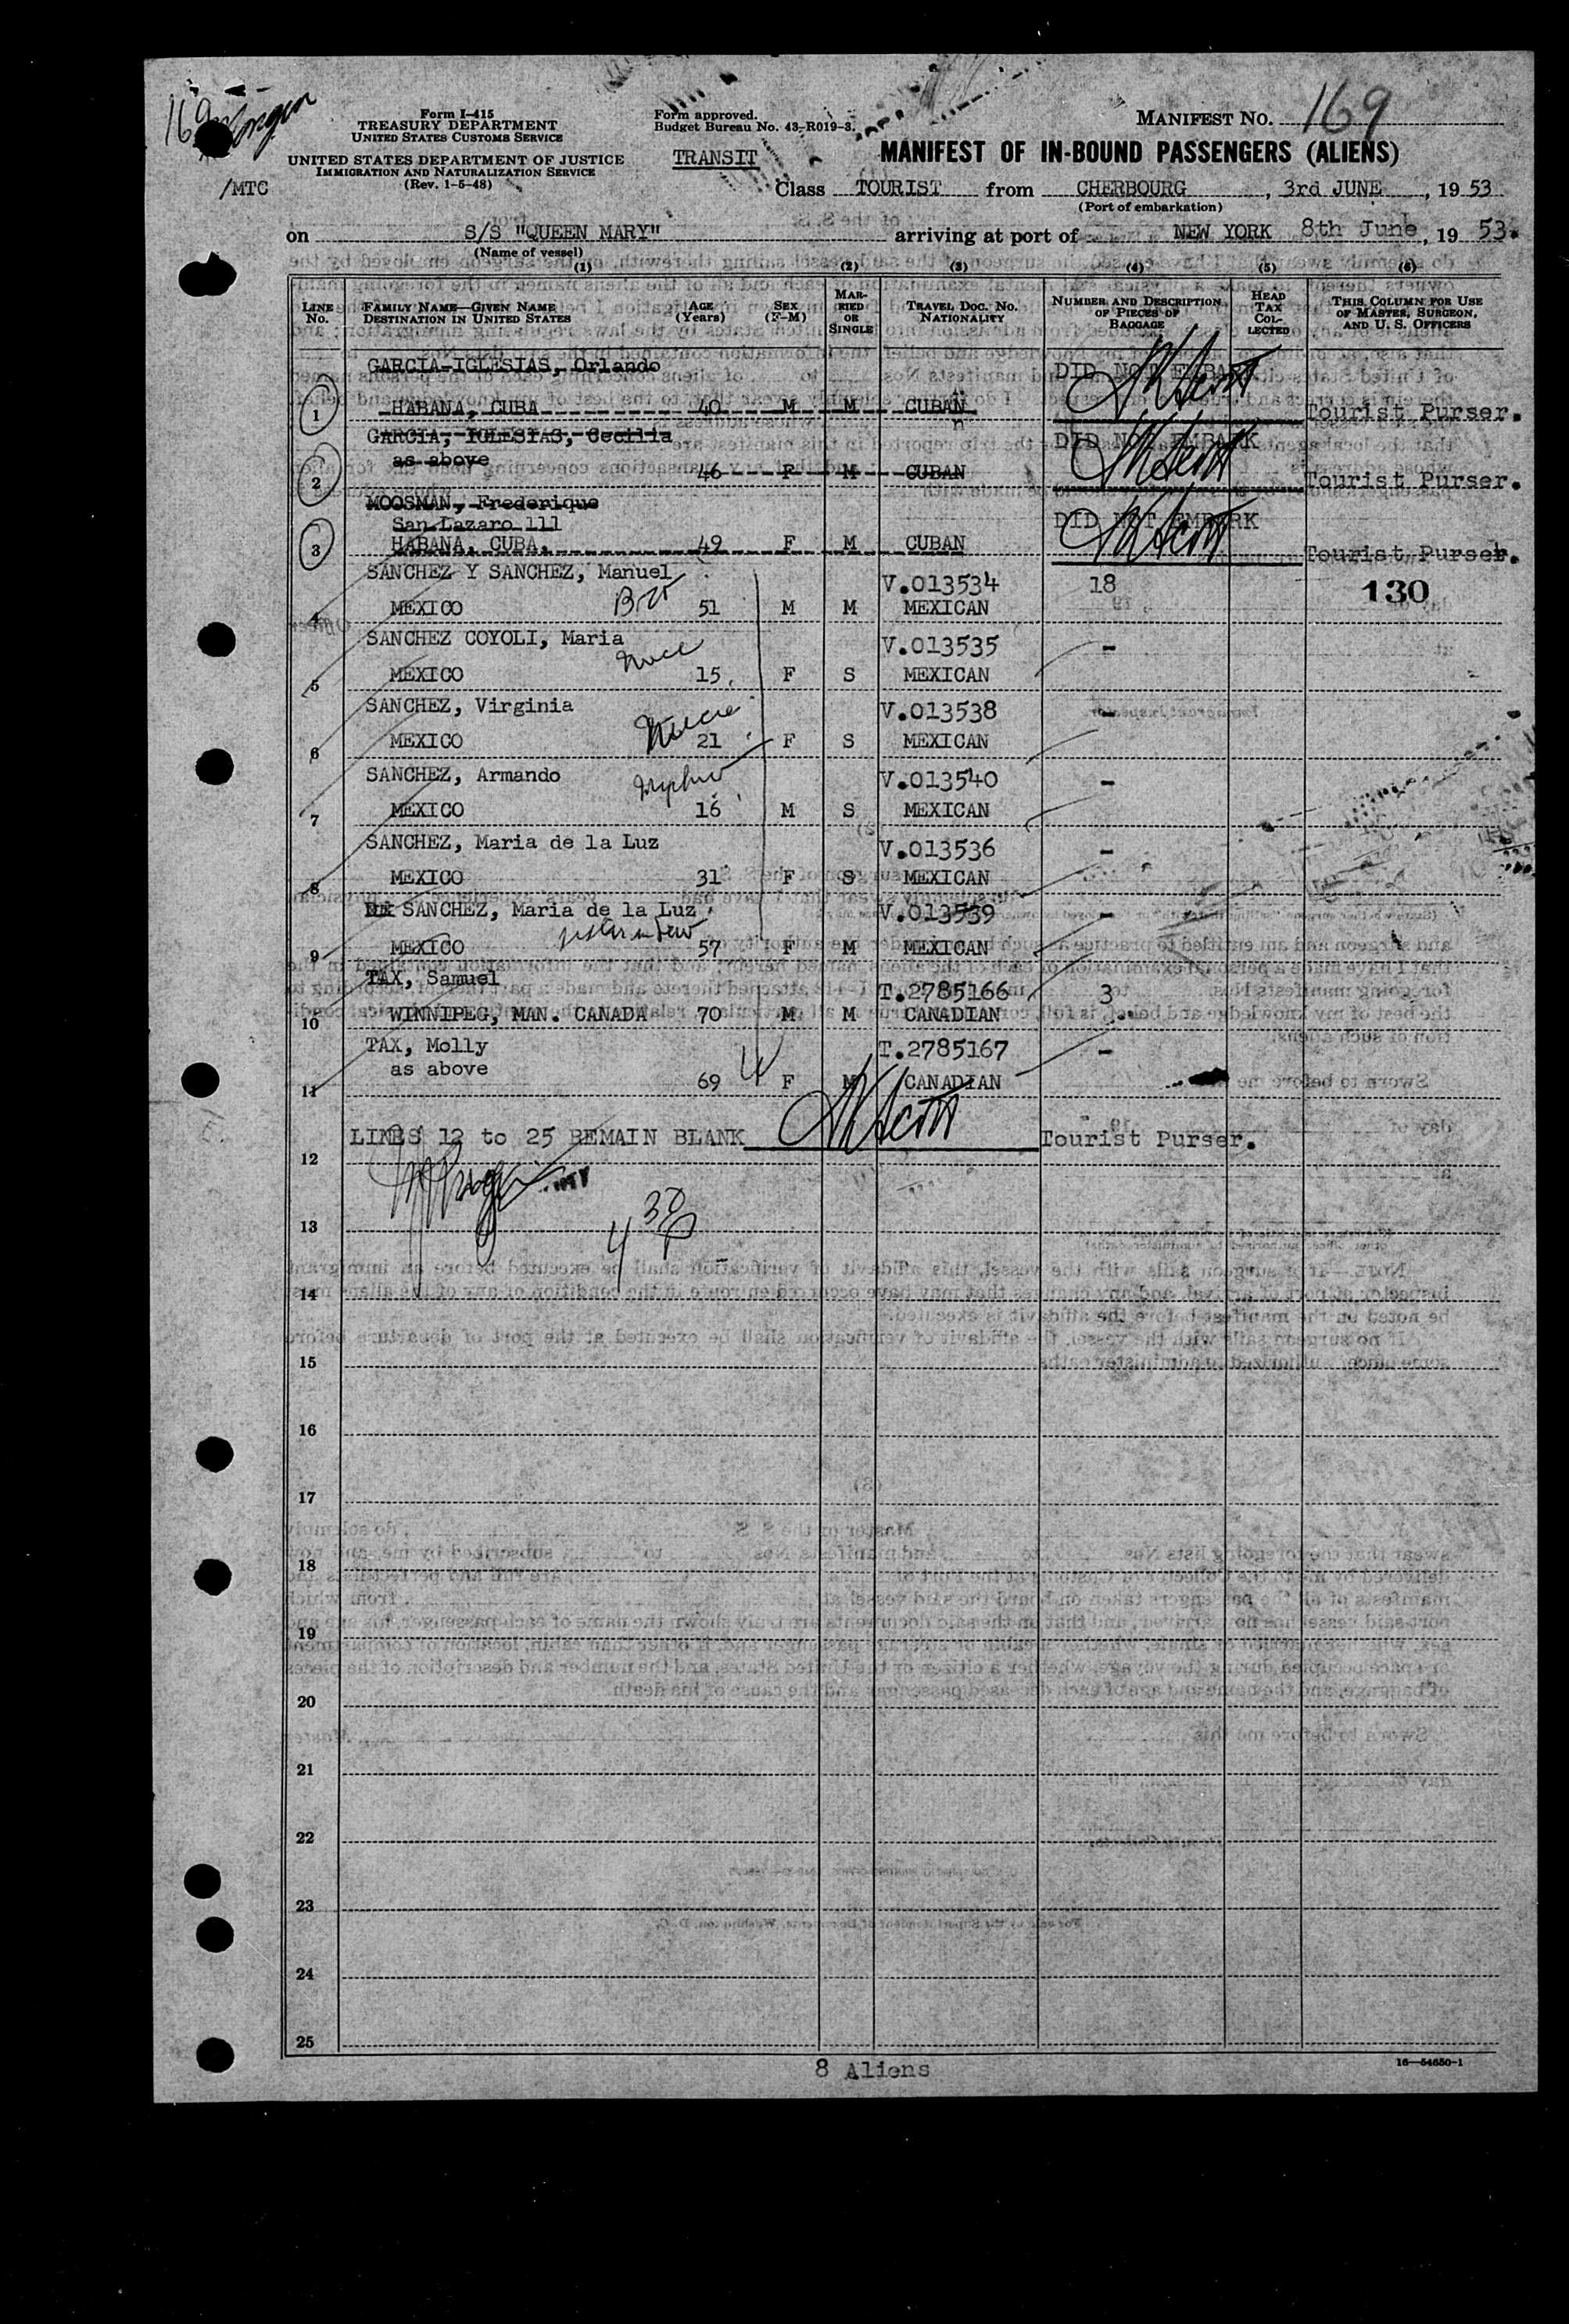 169
Form I-415
TREASURY DEPARTMENT
UNITED STATES CUSTOMS SERVICE
UNITED STATES DEPARTMENT OF JUSTICE
IMMIGRATION AND NATURALIZATION SERVICE
(Rev. 1-5-48)
/MTC
Form approved.
Budget Bureau No. 43-R019-3.
TRANSIT
MANIFEST NO. 169
MANIFEST OF IN-BOUND PASSENGERS (ALIENS)
Class TOURIST from CHERBOURG, 3rd JUNE, 19 53
(Port of embarkation)
on S/S "QUEEN MARY" arriving at port of NEW YORK 8th June, 19 53.
(Name of vessel)
(1) (2) (3) (4) (5) (6)
LINE No. FAMILY NAME—GIVEN NAME DESTINATION IN UNITED STATES AGE (Years) SEX (F-M) MARRIED OR SINGLE TRAVEL DOC. NO. NATIONALITY NUMBER AND DESCRIPTION OF PIECES OF BAGGAGE HEAD TAX COLLECTED THIS COLUMN FOR USE OF MASTER, SURGEON, AND U. S. OFFICERS
GARCIA-IGLESIAS, Orlando DID NOT EMBARK
1 HABANA, CUBA 40 M M CUBAN Tourist Purser.
GARCIA, IGLESIAS, Cecilia DID NOT EMBARK
as above
2 46 F M CUBAN Tourist Purser.
MOOSMAN, Frederique
San Lazaro 111 DID NOT EMBARK
3 HABANA, CUBA. 49 F M CUBAN Tourist Purser.
SANCHEZ Y SANCHEZ, Manuel V.013534 18 130
4 MEXICO 51 M M MEXICAN
SANCHEZ COYOLI, Maria V.013535 -
5 MEXICO niece 15 F S MEXICAN
SANCHEZ, Virginia V.013538 -
6 MEXICO niece 21 F S MEXICAN
SANCHEZ, Armando V.013540 -
7 MEXICO nephew 16 M S MEXICAN
SANCHEZ, Maria de la Luz V.013536 -
8 MEXICO 31 F S MEXICAN
SANCHEZ, Maria de la Luz V.013539 -
9 MEXICO sister in law 57 F M MEXICAN
TAX, Samuel T.2785166 3
10 WINNIPEG, MAN. CANADA 70 M M CANADIAN
TAX, Molly T.2785167 -
as above
11 69 F M CANADIAN
LINES 12 to 25 REMAIN BLANK Tourist Purser.
12
4 30 P
13
14
15
16
17
18
19
20
21
22
23
24
25
8 Aliens
16—54650-1